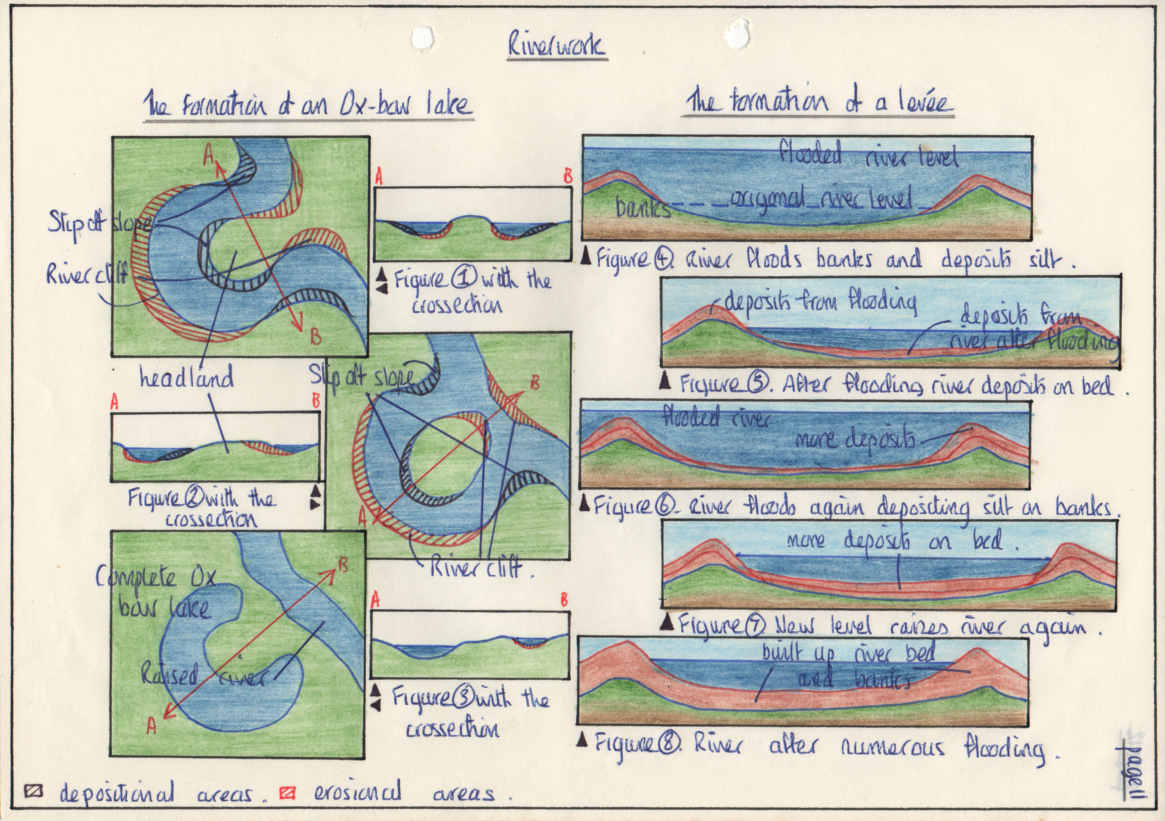 Riverwork
The formation of an Ox-bow lake
A
Slip off slope
River cliff
B
headland
A B
Figure 1 with the
crossection
Slip off slope
B
A
River cliff.
A B
Figure 2 with the
crossection
Complete Ox
bow lake
B
Raised river
A
A B
Figure 3 with the
crossection
depositional areas. erosional areas.
The formation of a levée
flooded river level
origonal river level
banks
Figure 4. River floods banks and deposits silt.
deposits from flooding
deposits from
river after flooding
Figure 5. After flooding river deposits on bed.
flooded river
more deposits
Figure 6. River floods again depositing silt on banks.
more deposits on bed.
Figure 7 New level raizes river again.
built up river bed
and banks
Figure 8. River after numerous flooding.
page 11